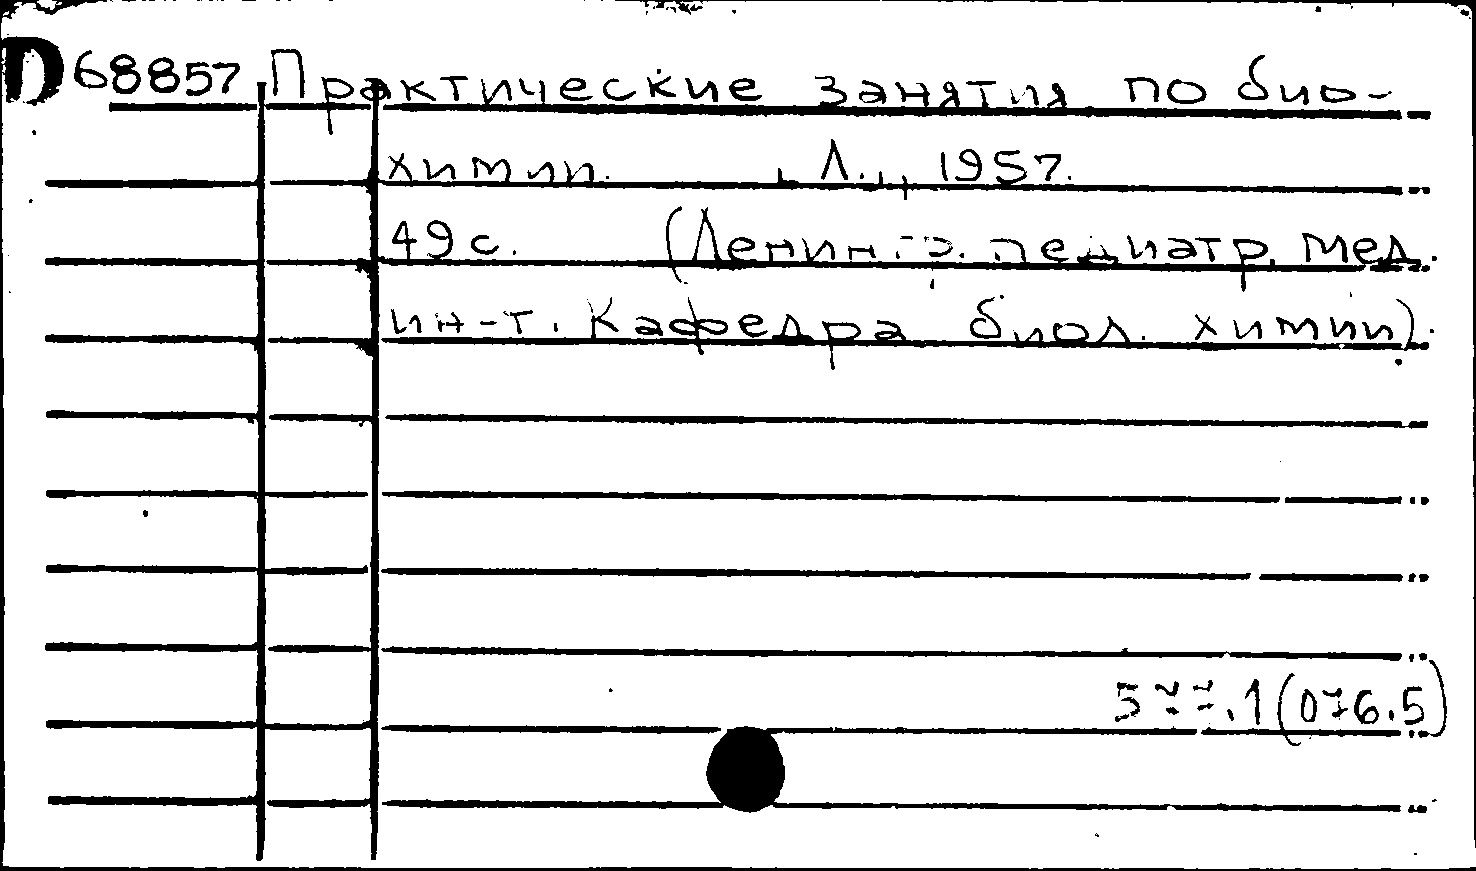 D 68857 Практические занятия по био-
химии. , Л., , 1957.
49 с. (Ленингр. педиатр. мед.
ин-т. Кафедра биол. химии).
577.1(076.5)